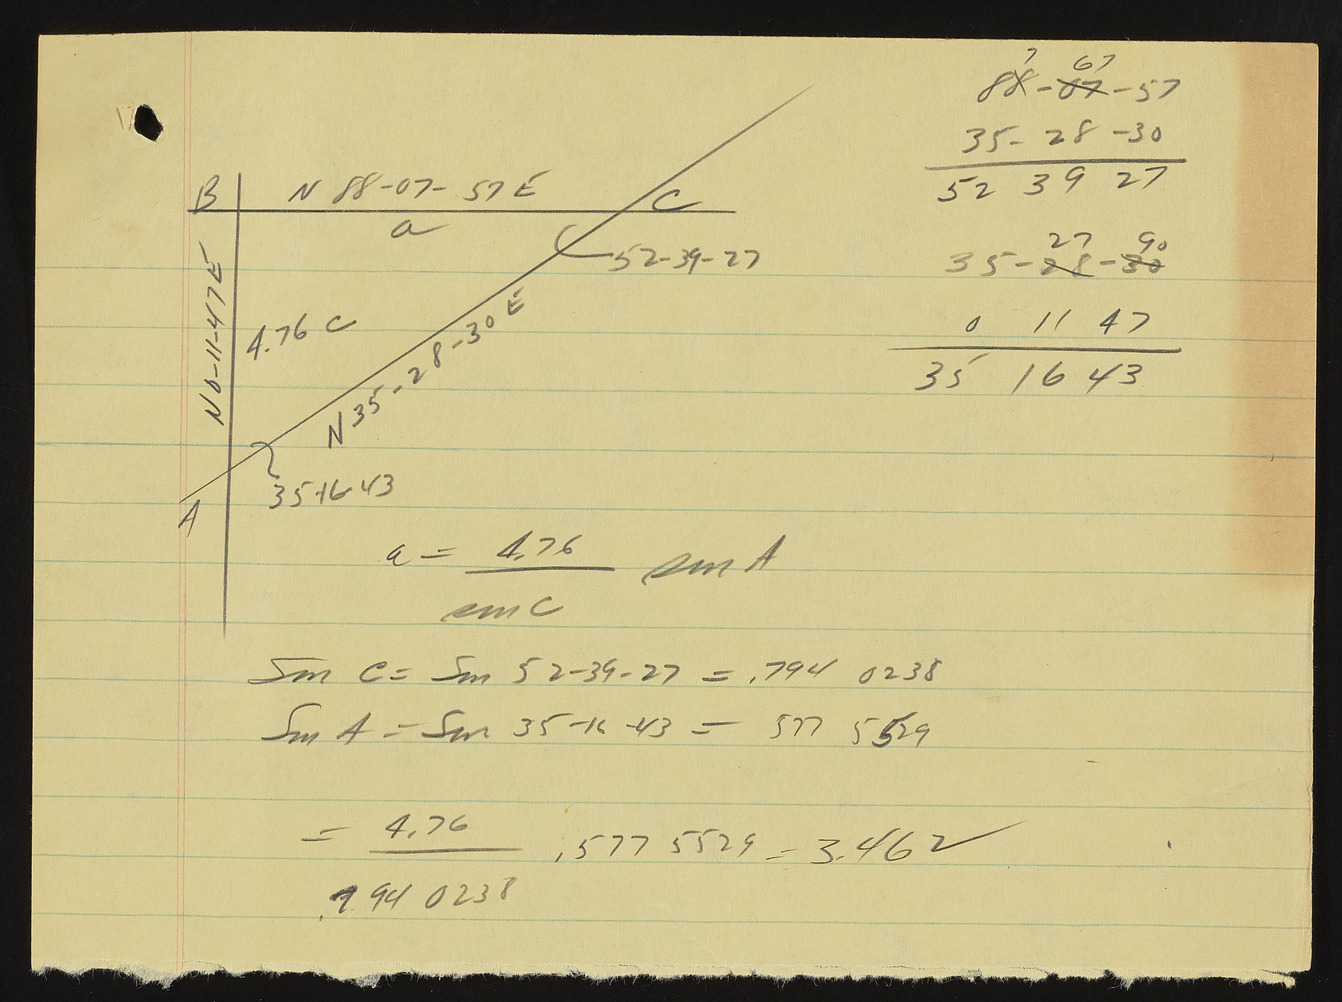 7 67
88-07-57
35-28-30
52 39 27
27 90
35-28-30
0 11 47
35 16 43
B N 88-07-57 E C
a
52-39-27
N 0-11-47 E
4.76 c
N 35-28-30 E
35-16-43
A
a = 4.76 sin A
sin C
Sin C = Sin 52-39-27 = .794 0238
Sin A = Sin 35-16-43 = 577 5529
= 4.76 .577 5529 = 3.462 ✓
.794 0238